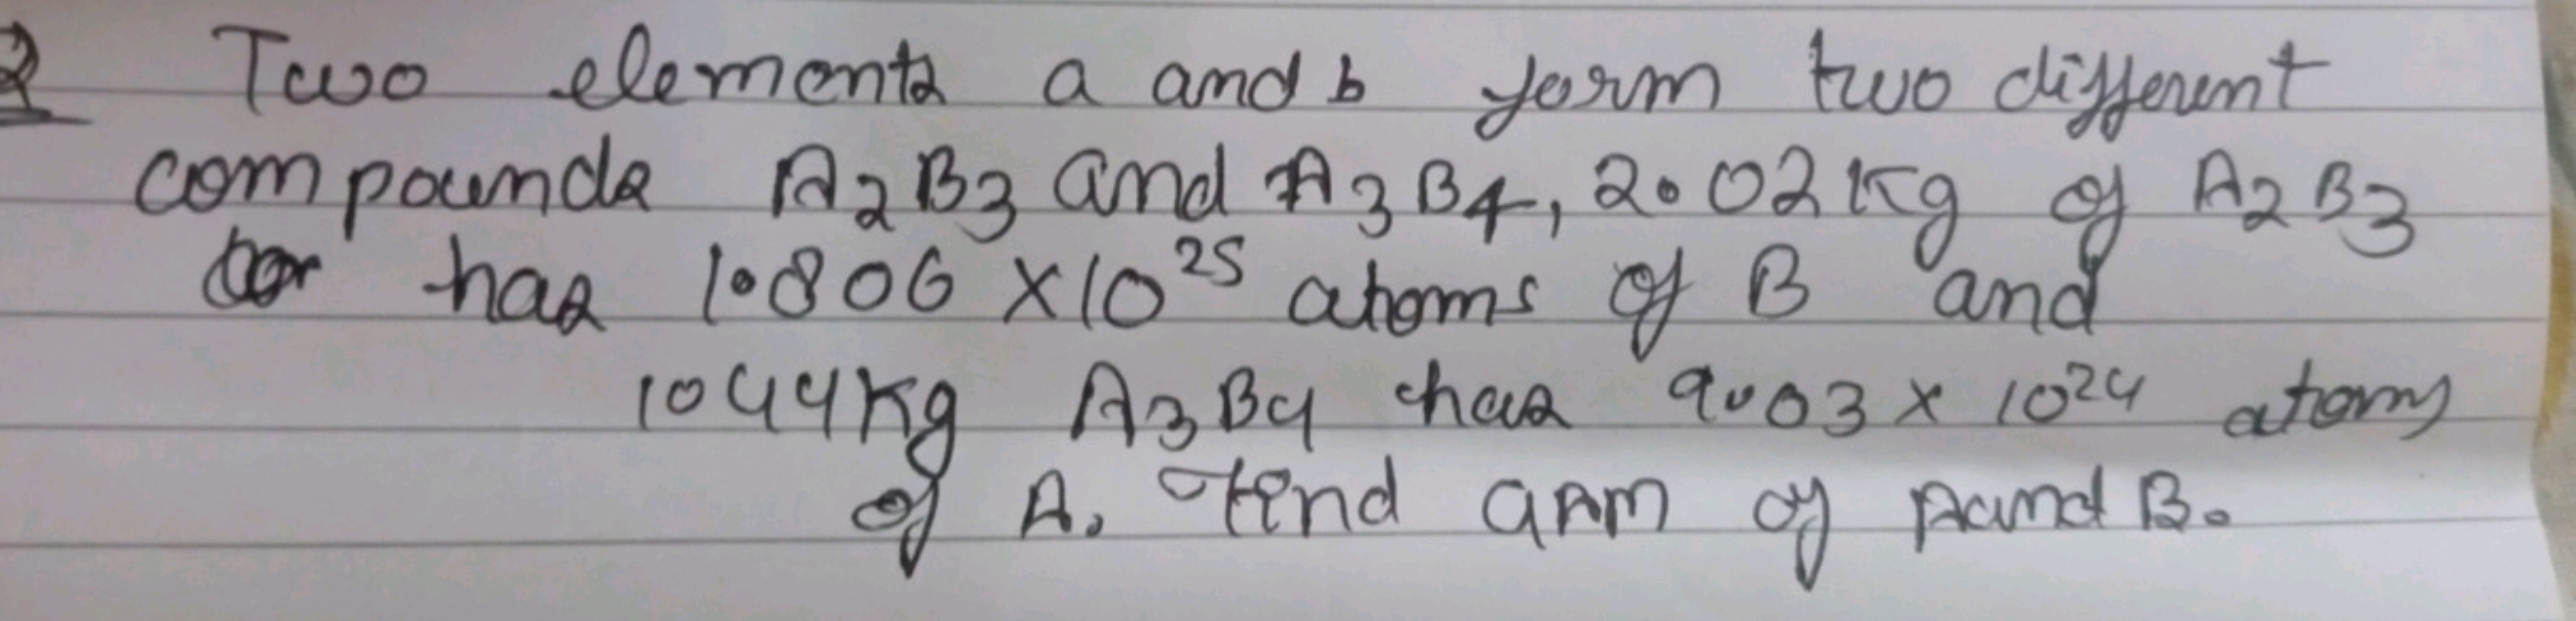 2 Two elements a and b form two different
compounds A2B3 and A3B4, 2.02 Kg of A2B3
has 1.806 ×10²⁵ atoms of B and
1044Kg A3B4 has 9.03 × 10²⁴ atoms
of A. Find GAM of A and B.